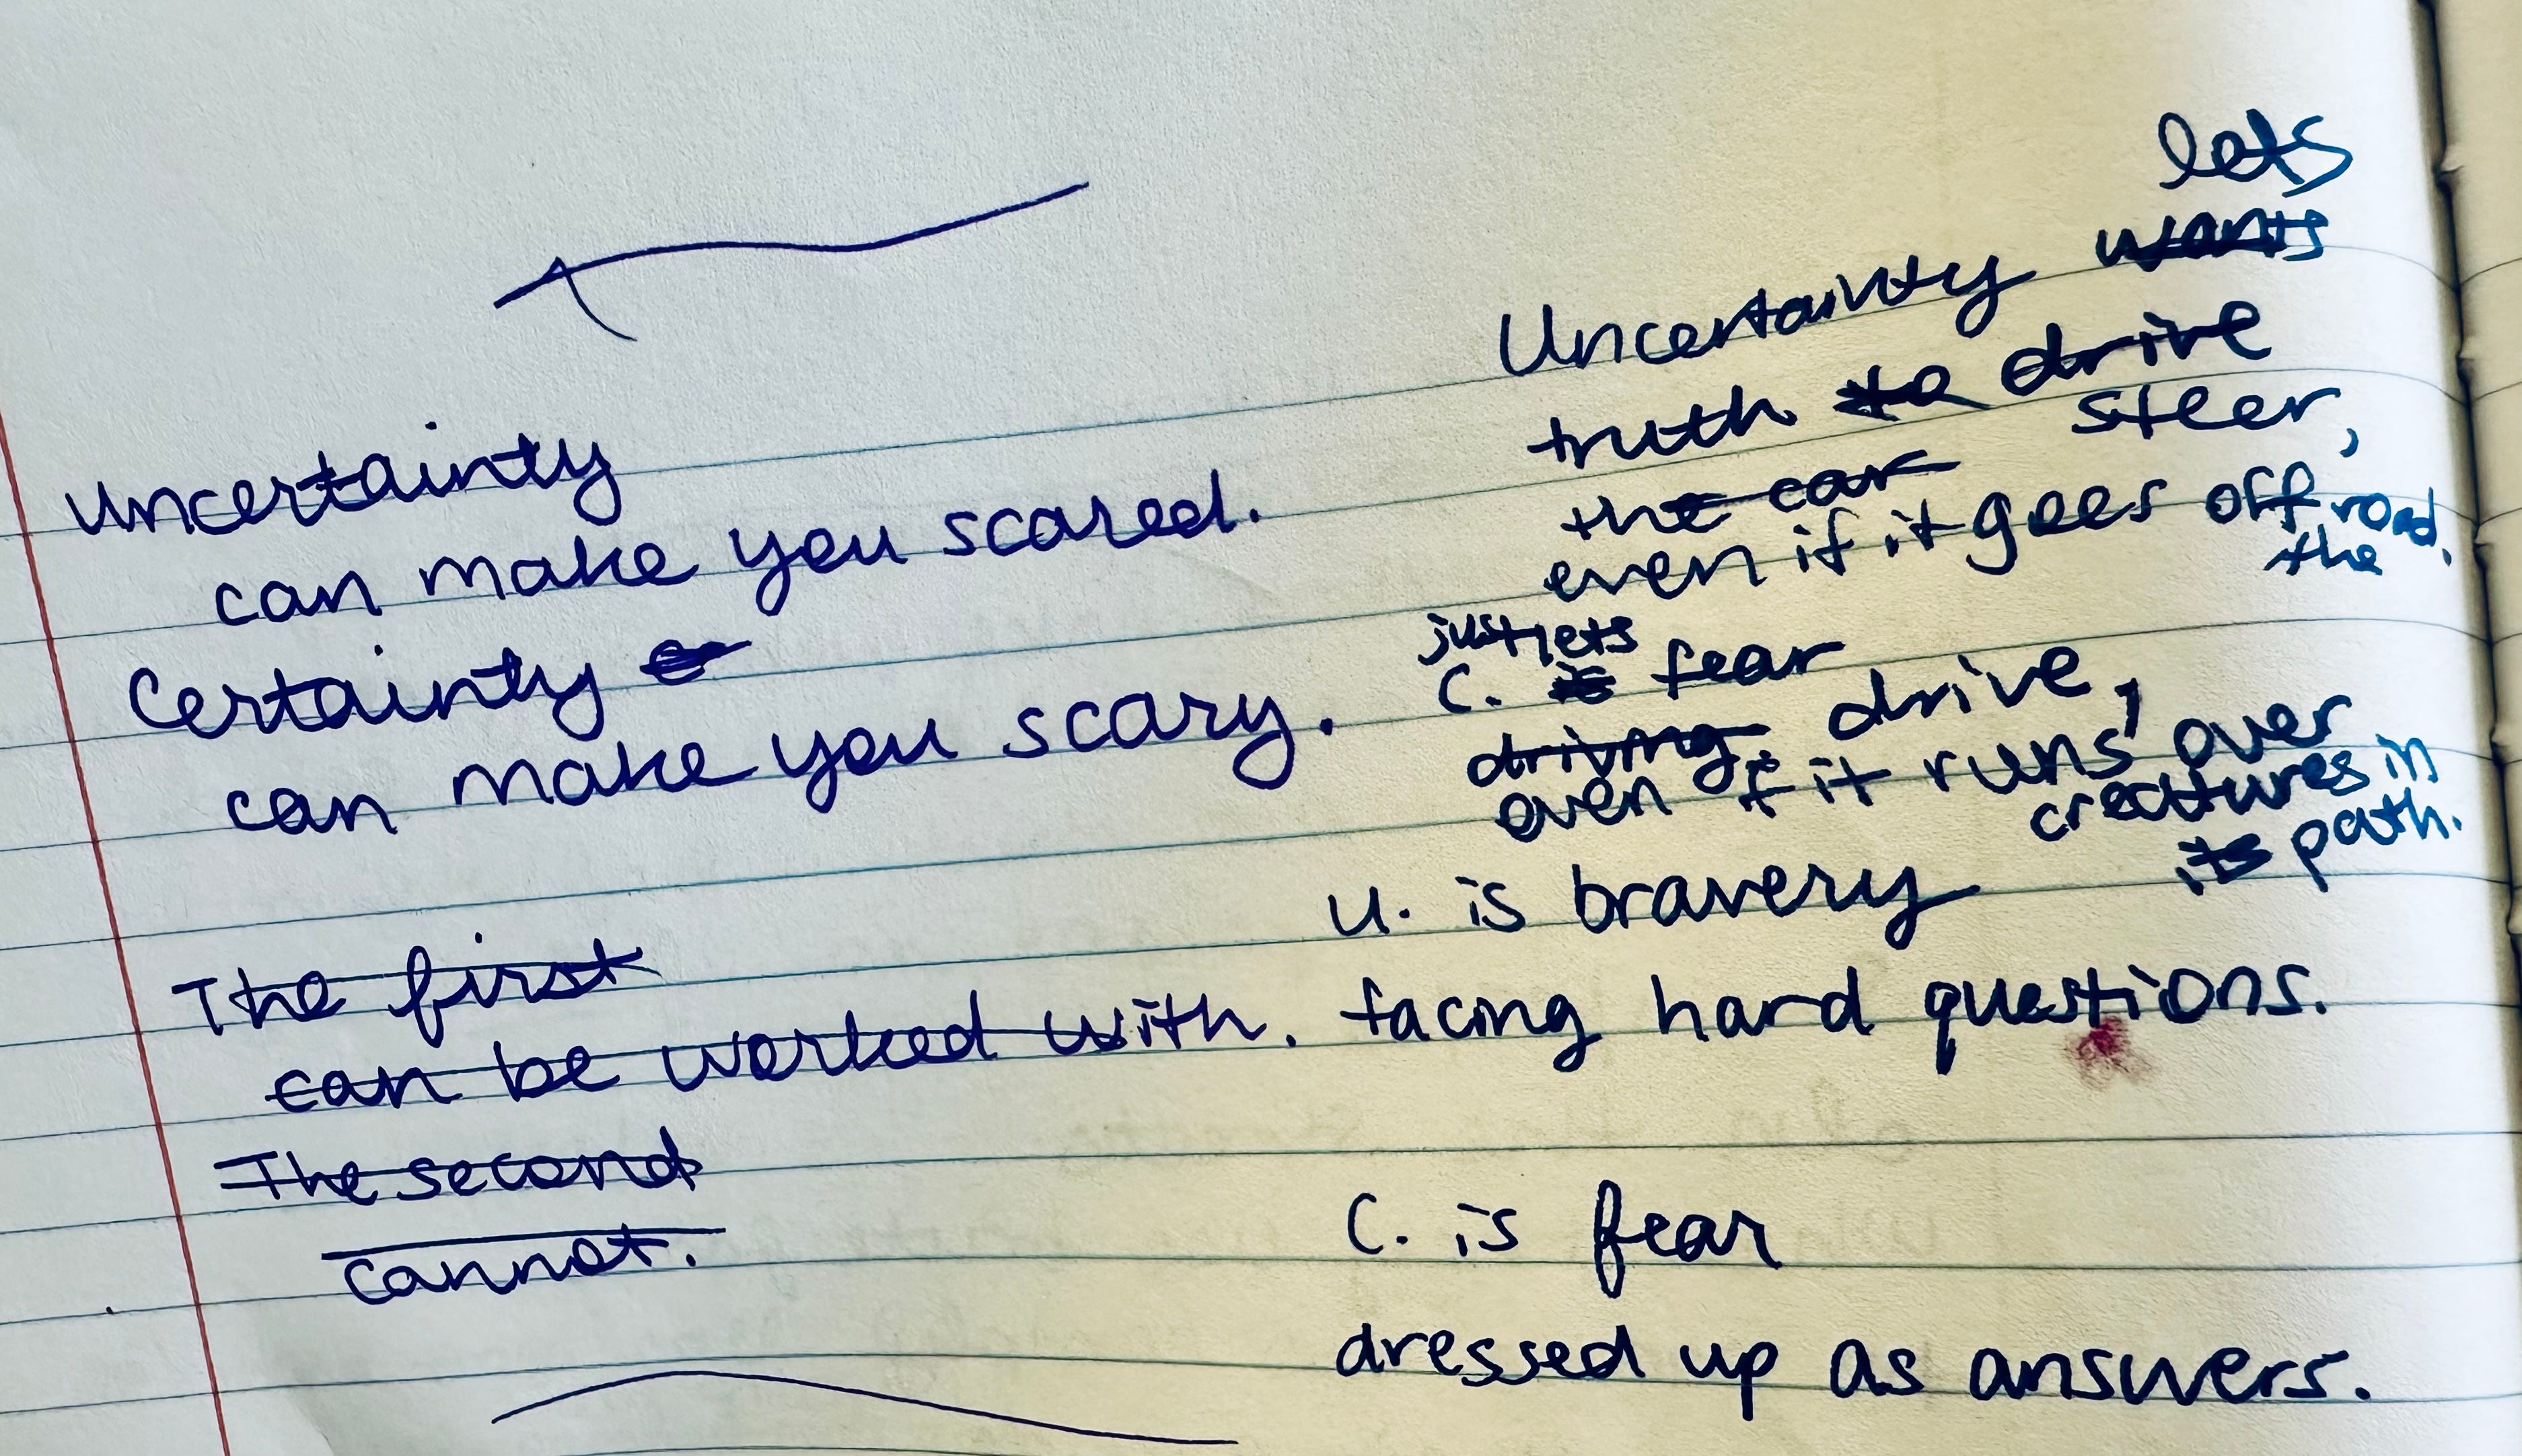 Uncertainty
can make you scared.
Certainty
can make you scary.
The first
can be worked with.
The second
cannot.
lets
Uncertainty wants
truth to drive
steer,
the car
even if it goes off road.
the
just lets
C. is fear
driving. drive,
even if it runs over
creatures in
its path.
U. is bravery
facing hard questions.
C. is fear
dressed up as answers.